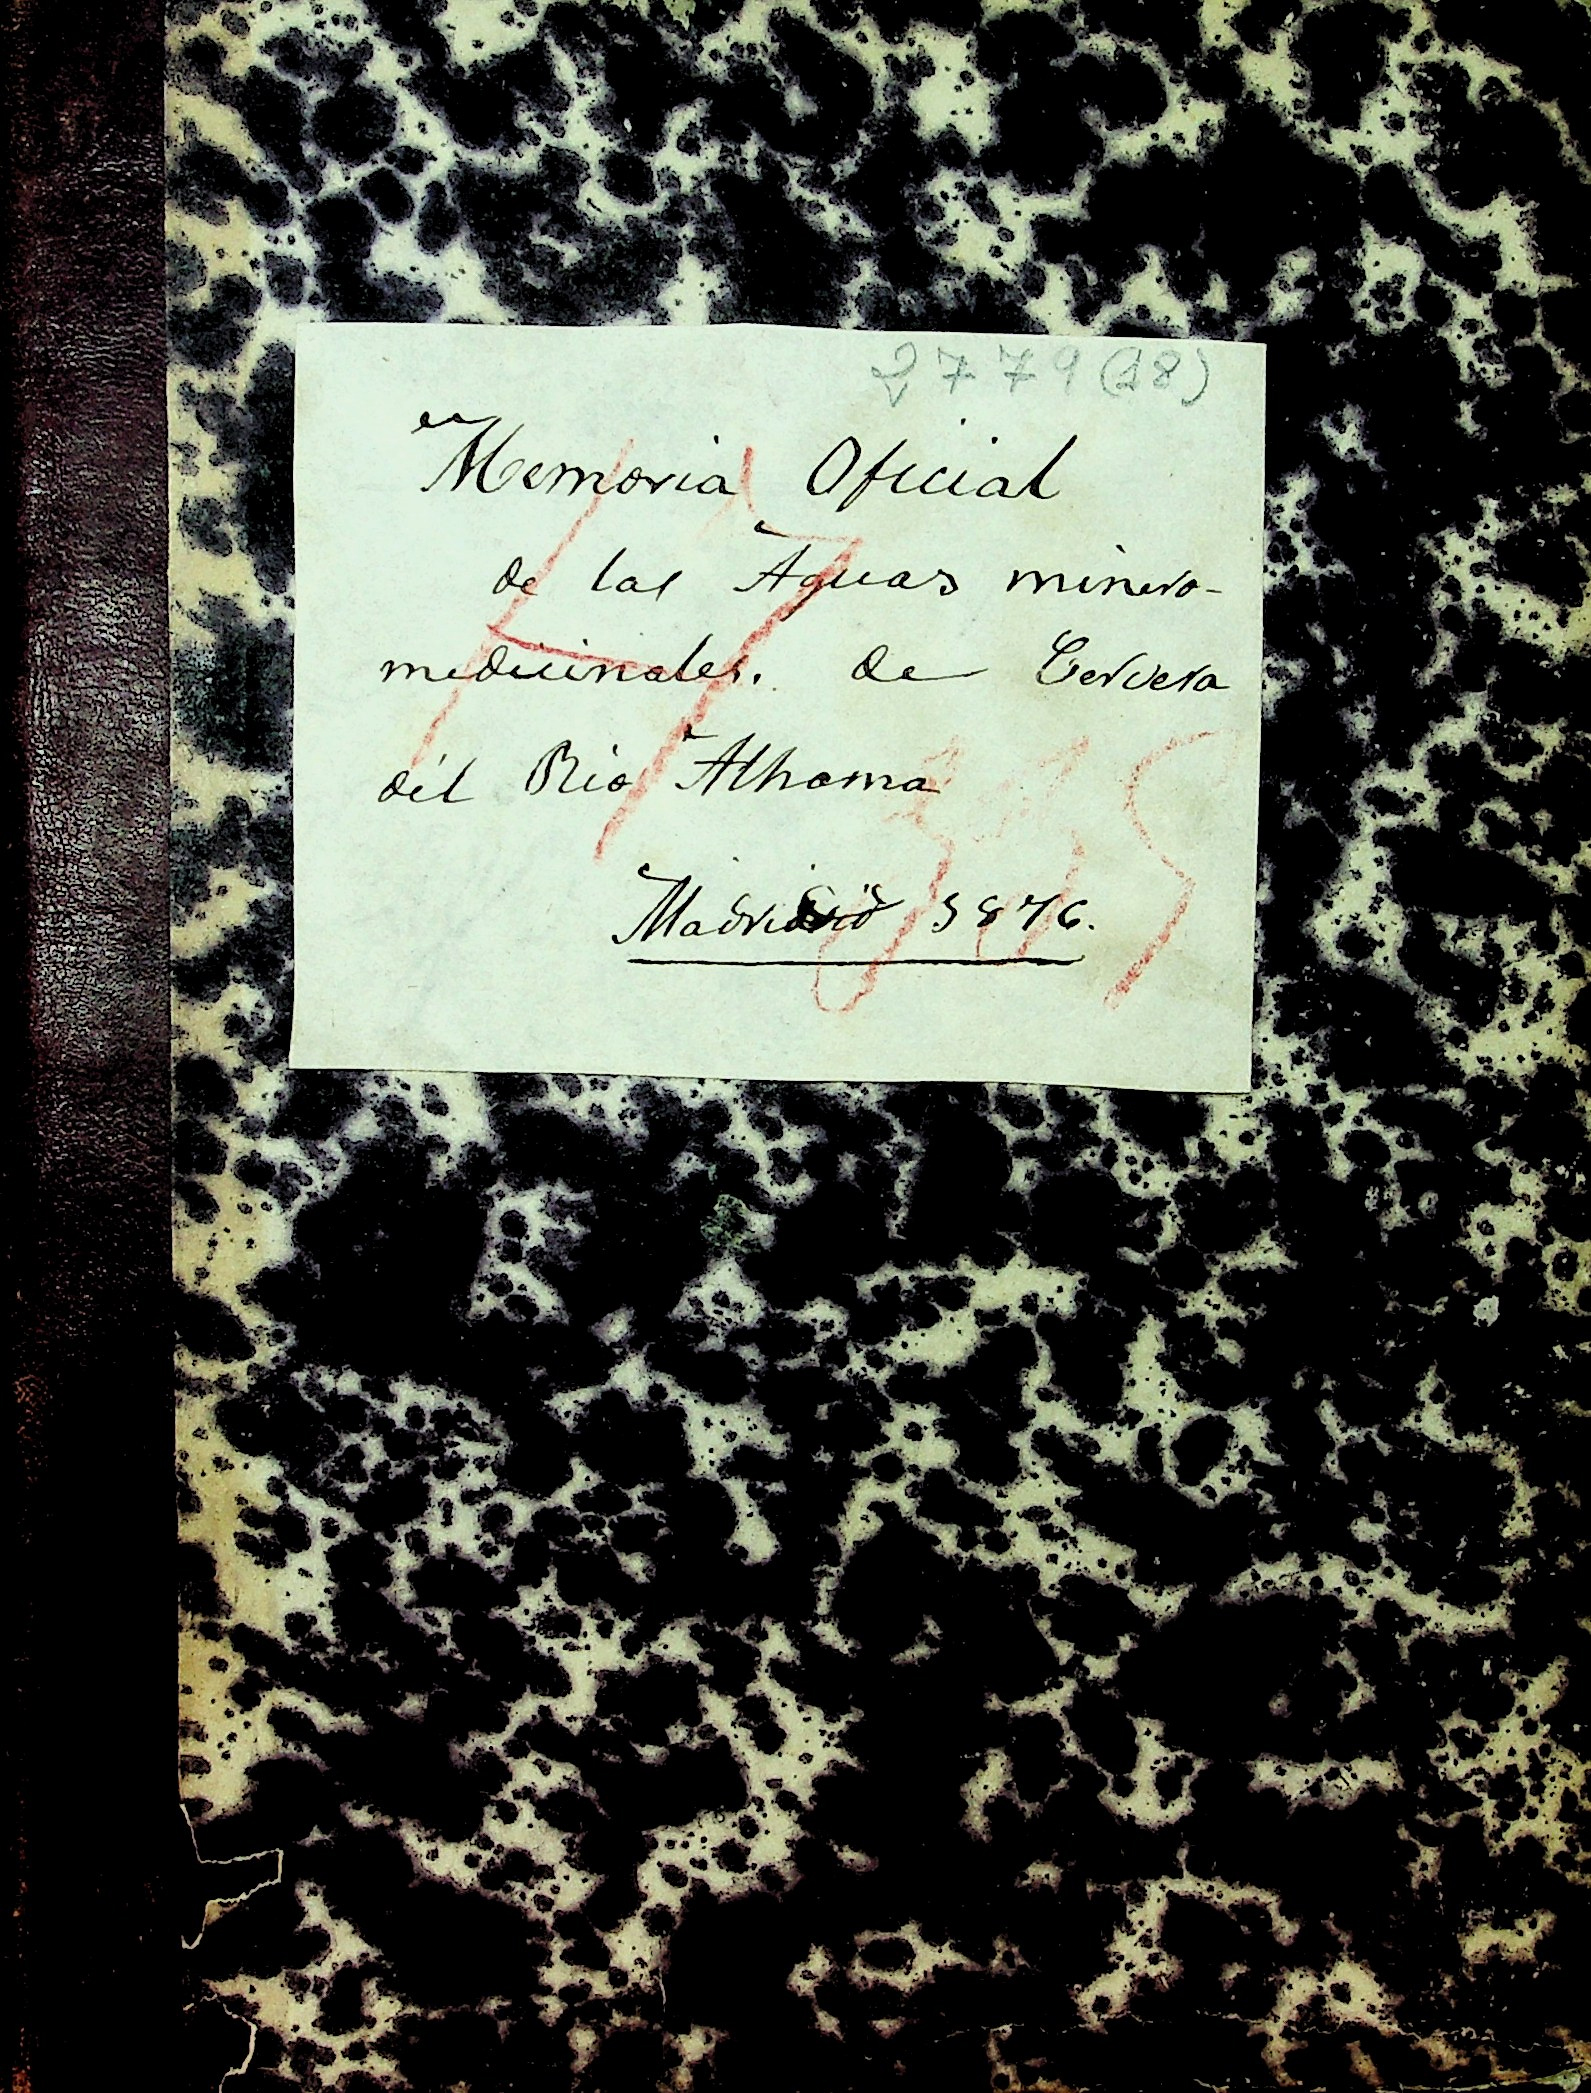 2779(18)
Memoria Oficial
de las Aguas minero-
medicinales. de Cervera
del Rio Alhama
Madrid 1876.